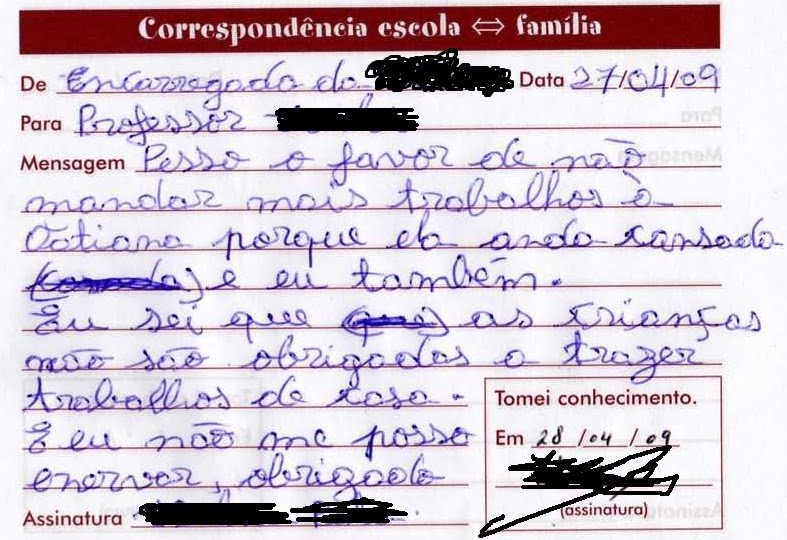 Correspondência escola ⇔ família
De Encarregada da Data 27/04/09
Para Professor
Mensagem Pesso o favor de não
mandar mais trabalhos à
Tatiana porque ela anda cansada
e eu também.
Eu sei que as crianças
não são obrigadas a trazer
trabalhos de casa.
E eu não me posso
enervar, obrigada
Assinatura
Tomei conhecimento.
Em 28/04/09
(assinatura)